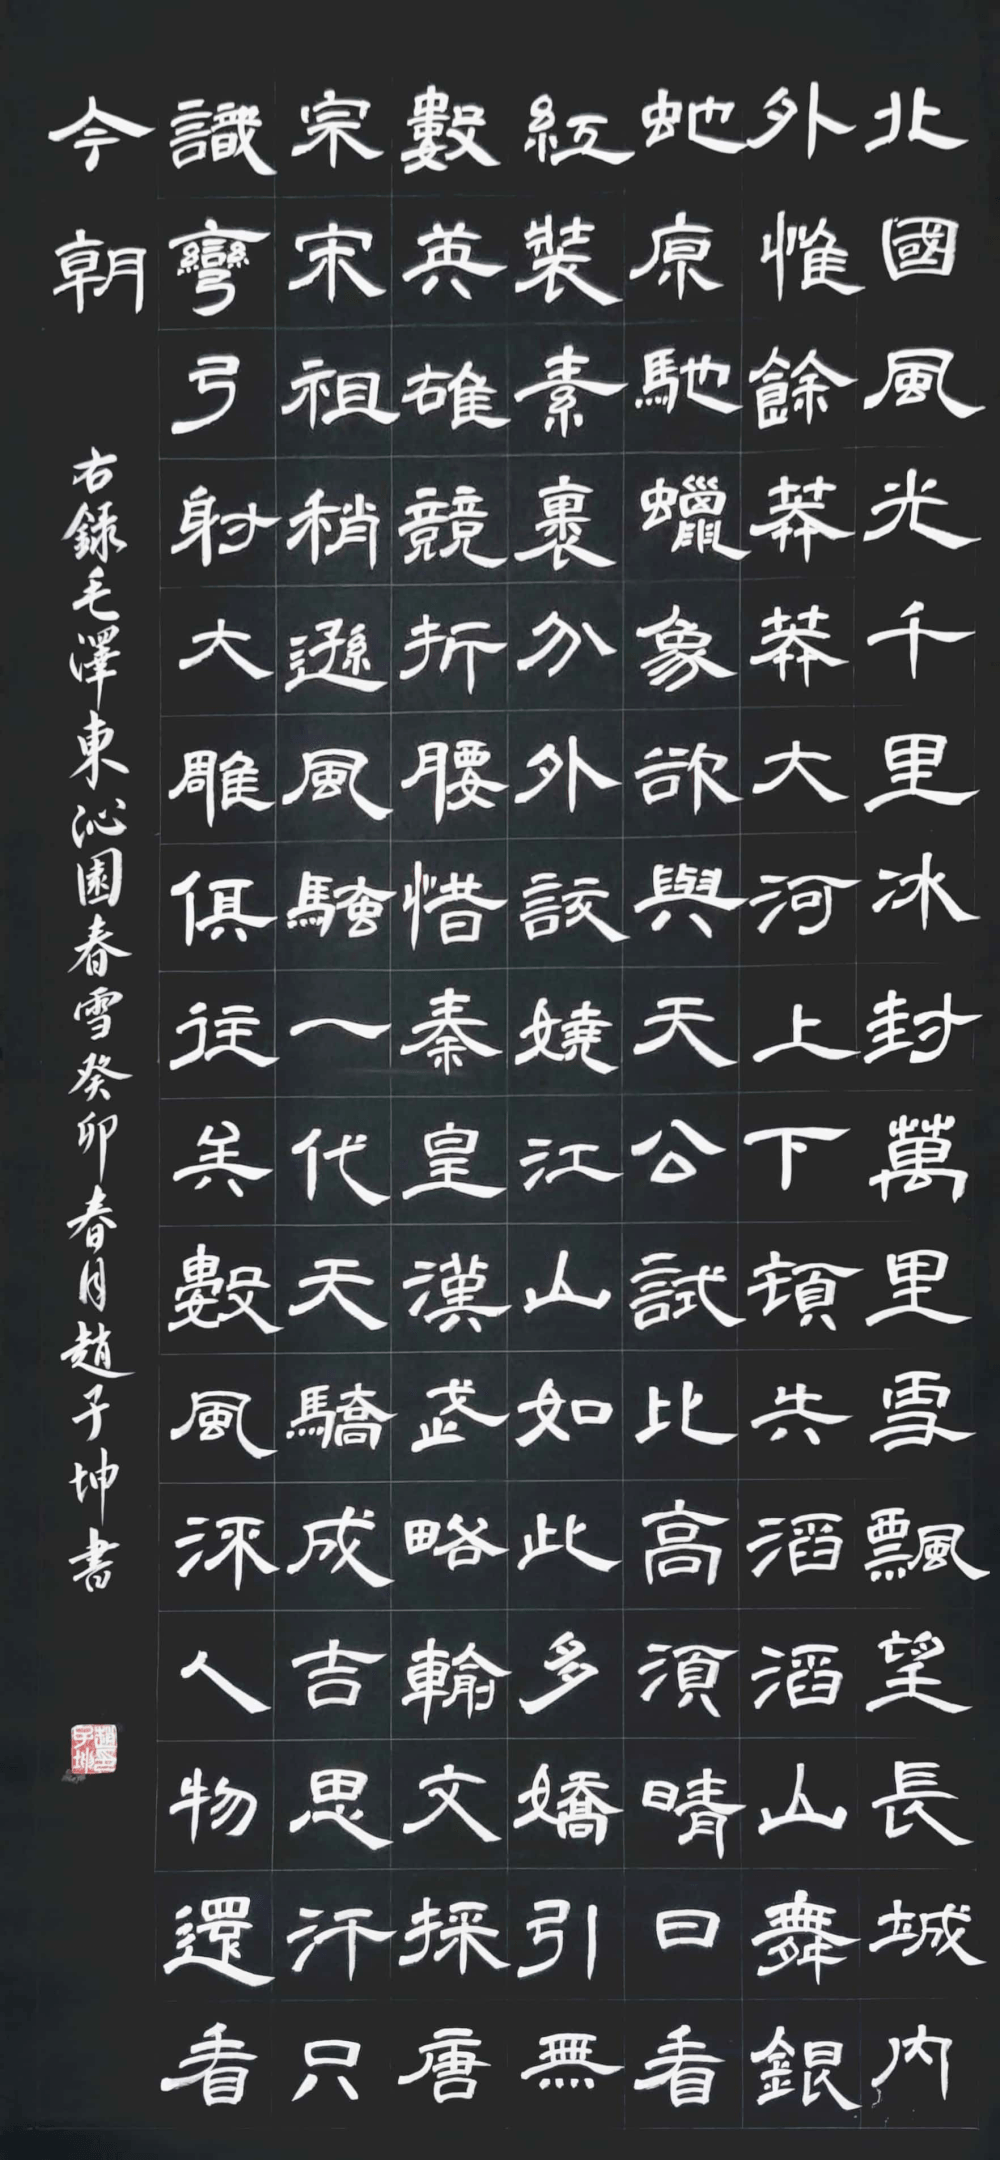 北國風光千里冰封萬里雪飄望長城內
外惟餘莽莽大河上下頓失滔滔山舞銀
虵原馳蠟象欲與天公試比高須晴日看
紅裝素裹分外嬈江山如此多嬌引無
數英雄競折腰惜秦皇漢武略輸文採唐
宗宋祖稍遜風騷一代天驕成吉思汗只
識彎弓射大雕俱往矣數風流人物還看
今朝
右錄毛澤東沁園春雪癸卯春月趙子坤書